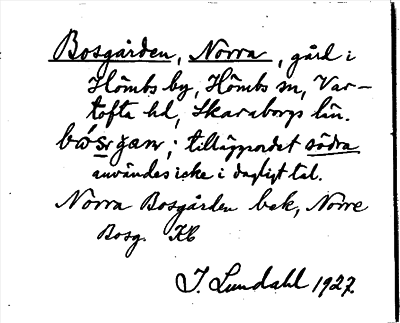 Bosgården, Norra, gård i
Hömbs by, Hömbs sn, Var-
tofta hd, Skaraborgs län.
tilläggsordet södra
användes icke i dagligt tal.
Norra Bosgården bek, Norre
Bosg. KB
J. Lundahl 1927.